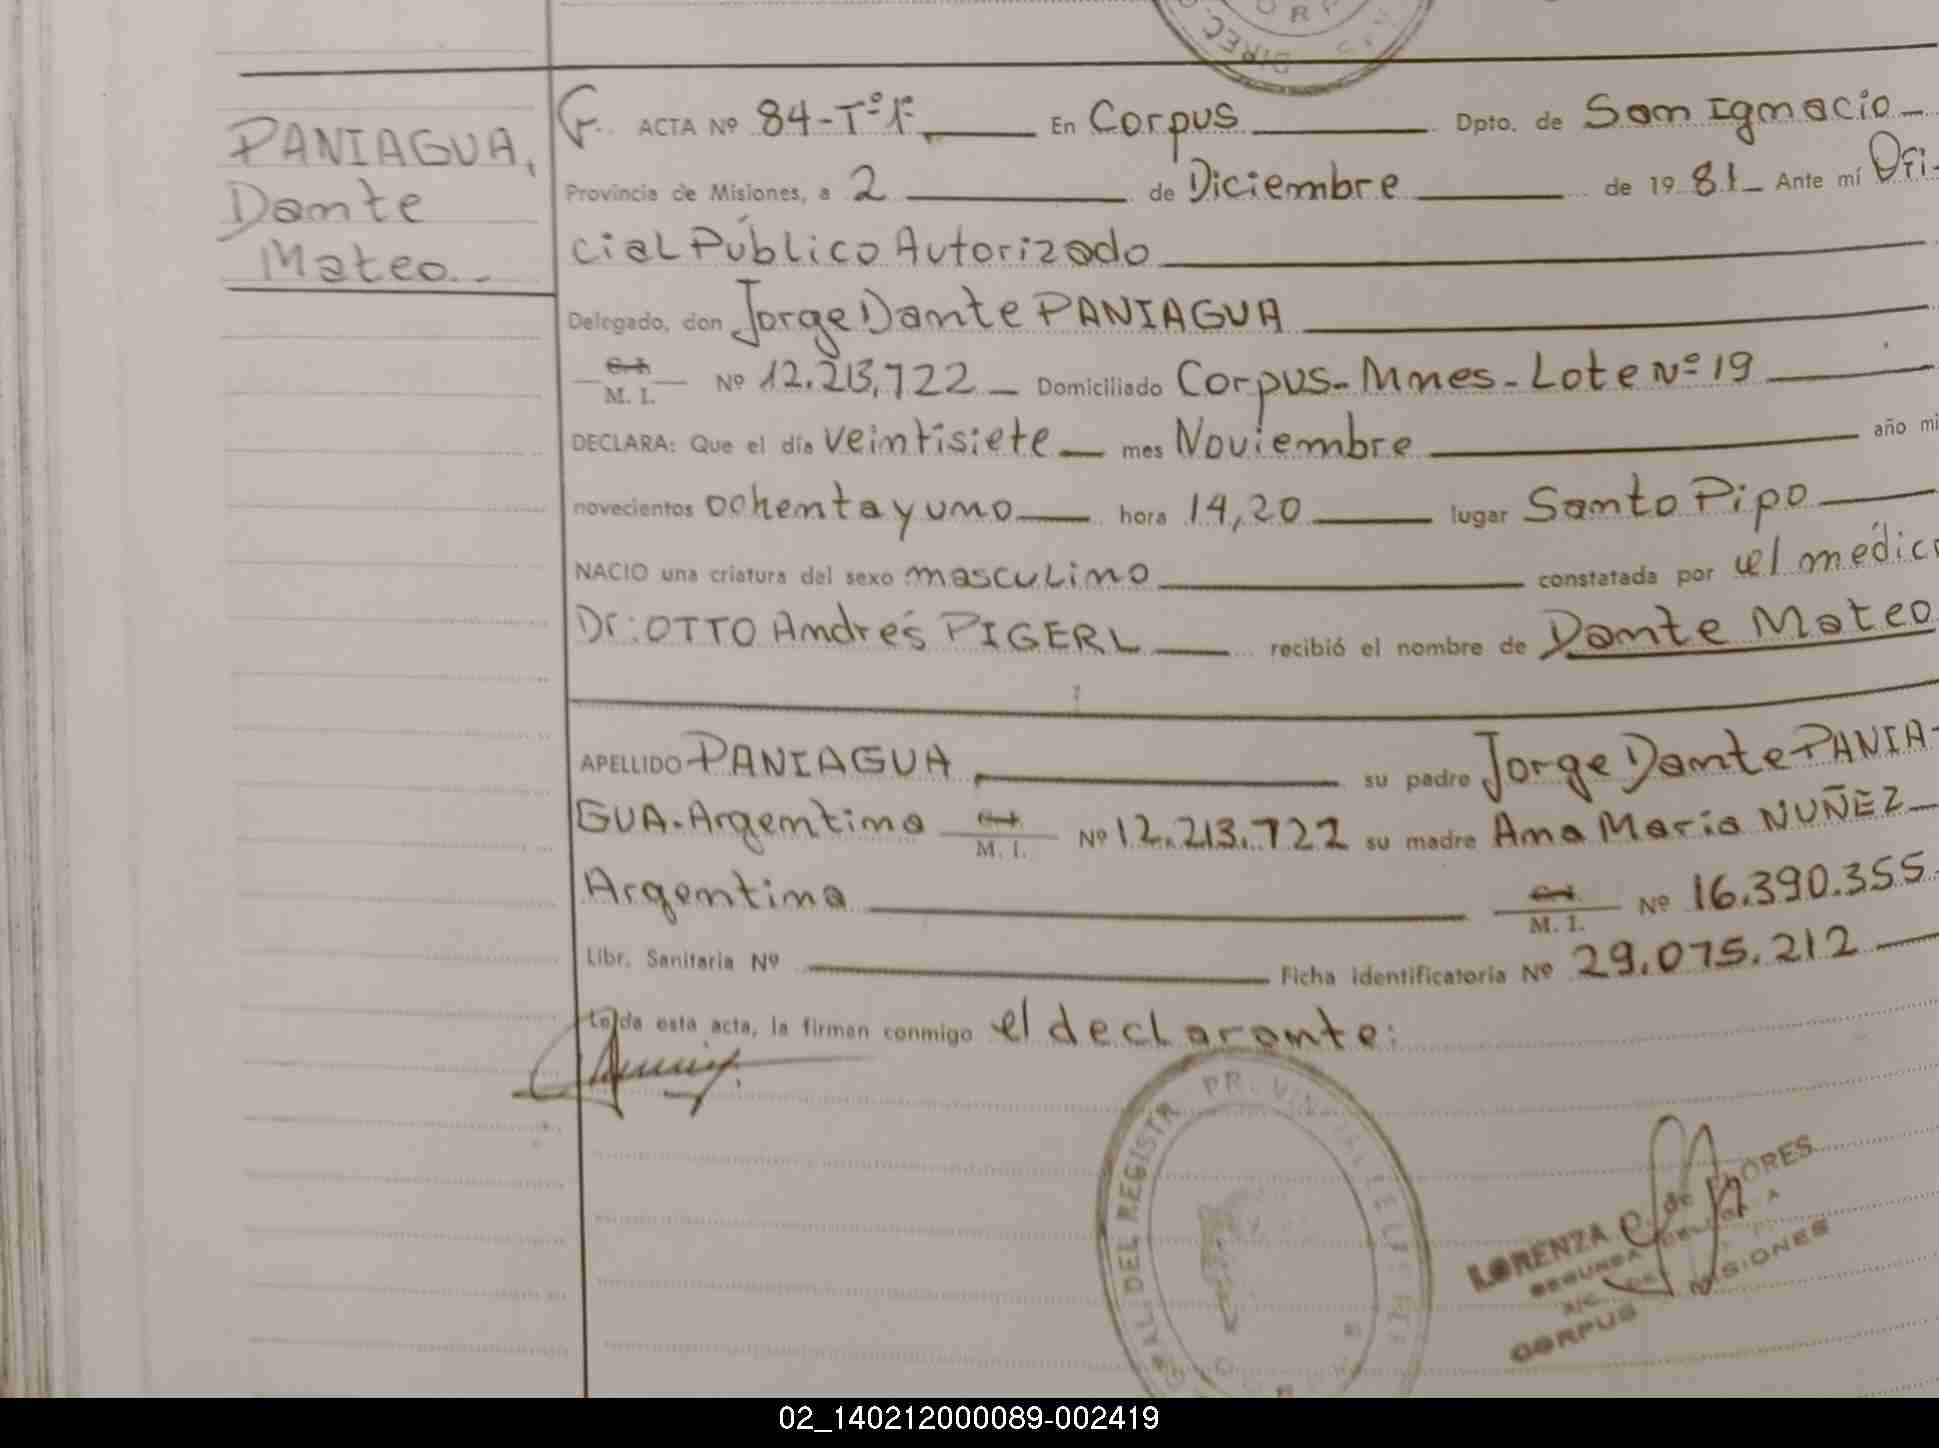 DIREC
CORP
PANIAGUA,
Dante
Mateo.-
ACTA Nº 84-Tº1º. En Corpus Dpto. de San Ignacio
Provincia de Misiones, a 2 de Diciembre de 1981 Ante mí Ofi-
cial Público Autorizado
Delegado, don Jorge Dante PANIAGUA
M. I. Nº 12.213,722 Domiciliado Corpus-Mnes-Lote Nº 19
DECLARA: Que el día veintisiete mes Noviembre año mi
novecientos ochenta y uno hora 14,20 lugar Santo Pipo
NACIO una criatura del sexo masculino constatada por el médico
Dr: OTTO Andrés PIGERL recibió el nombre de Dante Mateo
APELLIDO PANIAGUA, su padre Jorge Dante PANIA-
GUA-Argentino M. I. Nº 12.213.722 su madre Ana Maria NUÑEZ
Argentina M. I. Nº 16.390.355
Libr. Sanitaria Nº Ficha identificatoria Nº 29.075.212
Leída esta acta, la firman conmigo el declarante:
DEL REGISTR PR VIN
LORENZA
SEGUNDA
MISIONES
CORPUS
02_140212000089-002419